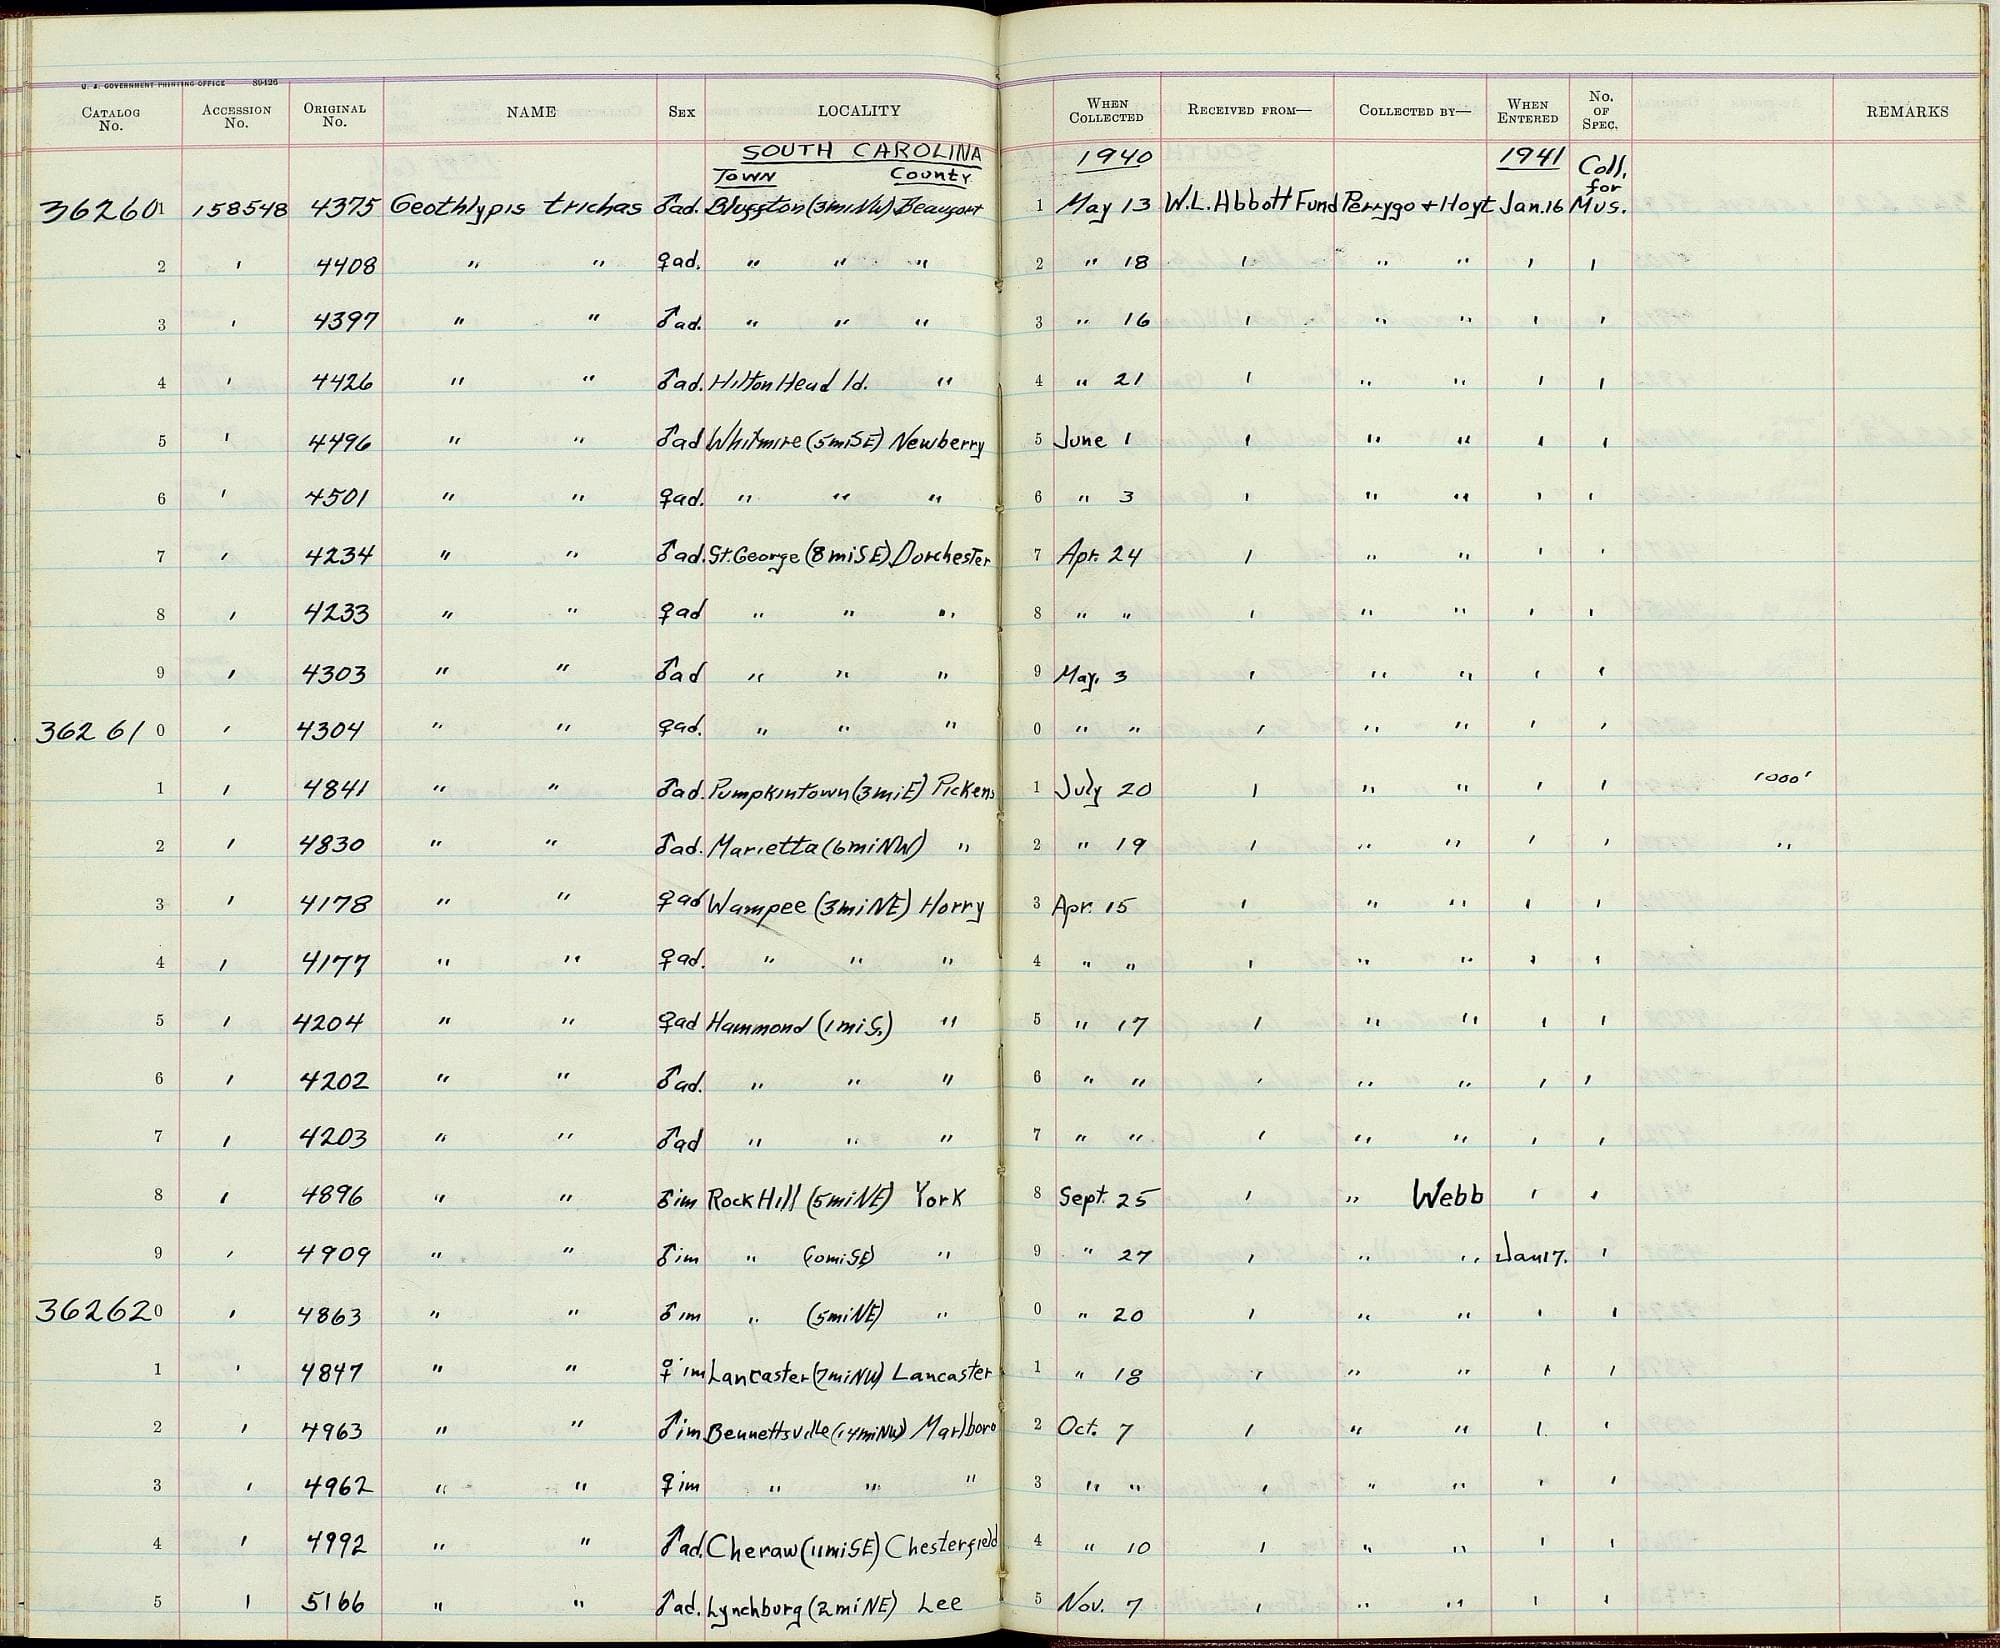 U. S. GOVERNMENT PRINTING OFFICE 89426
CATALOG No. ACCESSION No. ORIGINAL No. NAME SEX LOCALITY WHEN COLLECTED RECEIVED FROM— COLLECTED BY— WHEN ENTERED No. OF SPEC. REMARKS
SOUTH CAROLINA 1940 1941 Coll.
Town County for
362601 158548 4375 Geothlypis trichas ♂ad. Bluffton (3miNW) Beaufort 1 May 13 W.L. Abbott Fund Perrygo + Hoyt Jan.16 Mus.
2 ' 4408 " " ♀ad. " " " 2 " 18 ' " " ' '
3 ' 4397 " " ♂ad. " " " 3 " 16 ' " " ' '
4 ' 4426 " " ♂ad. Hilton Head Id. " 4 " 21 ' " " ' '
5 ' 4496 " " ♂ad Whitmire (5miSE) Newberry 5 June 1 ' " " ' '
6 ' 4501 " " ♀ad. " " " 6 " 3 ' " " ' '
7 ' 4234 " " ♂ad. St. George (8miSE) Dorchester 7 Apr. 24 ' " " ' '
8 ' 4233 " " ♀ad " " " 8 " " ' " " ' '
9 ' 4303 " " ♂ad " " " 9 May. 3 ' " " ' '
36261 0 ' 4304 " " ♀ad. " " " 0 " " ' " " ' '
1 ' 4841 " " ♂ad. Pumpkintown (3miE) Pickens 1 July 20 ' " " ' ' 1000'
2 ' 4830 " " ♂ad. Marietta (6miNW) " 2 " 19 ' " " ' ' "
3 ' 4178 " " ♀ad Wampee (3miNE) Horry 3 Apr. 15 ' " " ' '
4 ' 4177 " " ♀ad. " " " 4 " " ' " " ' '
5 ' 4204 " " ♀ad Hammond (1miS.) " 5 " 17 ' " " ' '
6 ' 4202 " " ♂ad. " " " 6 " " ' " " ' '
7 ' 4203 " " ♂ad " " " 7 " " ' " " ' '
8 ' 4896 " " ♂im Rock Hill (5miNE) York 8 Sept. 25 ' " Webb ' '
9 ' 4909 " " ♂im " (10miSE) " 9 " 27 ' " " Jan17. '
36262 0 ' 4863 " " ♂im " (5miNE) " 0 " 20 ' " " ' '
1 ' 4847 " " ♀im Lancaster (7miNW) Lancaster 1 " 18 ' " " ' '
2 ' 4963 " " ♂im Bennettsville (14miNW) Marlboro 2 Oct. 7 ' " " ' '
3 ' 4962 " " ♀im " " " 3 " " ' " " ' '
4 ' 4992 " " ♂ad. Cheraw (11miSE) Chesterfield 4 " 10 ' " " ' '
5 ' 5166 " " ♂ad. Lynchburg (2miNE) Lee 5 Nov. 7 ' " " ' '